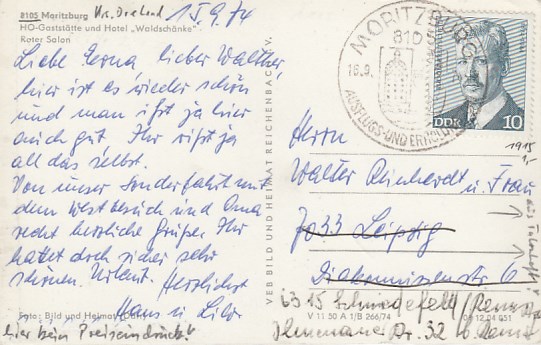 8105 Moritzburg
HO-Gaststätte und Hotel „Waldschänke"
Roter Salon
15.9.74
Liebe Gerna, lieber Walther,
hier ist es wieder schön
und man ißt ja hier
auch gut, Ihr wißt ja
all das selbst.
Von unser Sonderfahrt mit
dem Westbesuch und Oma
recht herzliche Grüße. Ihr
hattet doch sicher sehr
schönen Urlaub. Herzlichst
Hans u. Lilo
Foto: Bild und Heimat
hier kein Preiseindruck!
VEB BILD UND HEIMAT REICHENBACH i. V.
MORITZBURG
810
16.9.
AUSFLUGS- UND ERHOLU
DDR 10
1915
1,-
Herrn
Walter Reinhardt u. Frau
7033 Leipzig
Diakonissenstr. 6
6315
Ilmenauer Str. 32 b.
V 11 50 A 1/B 266/74
04 12 04 051